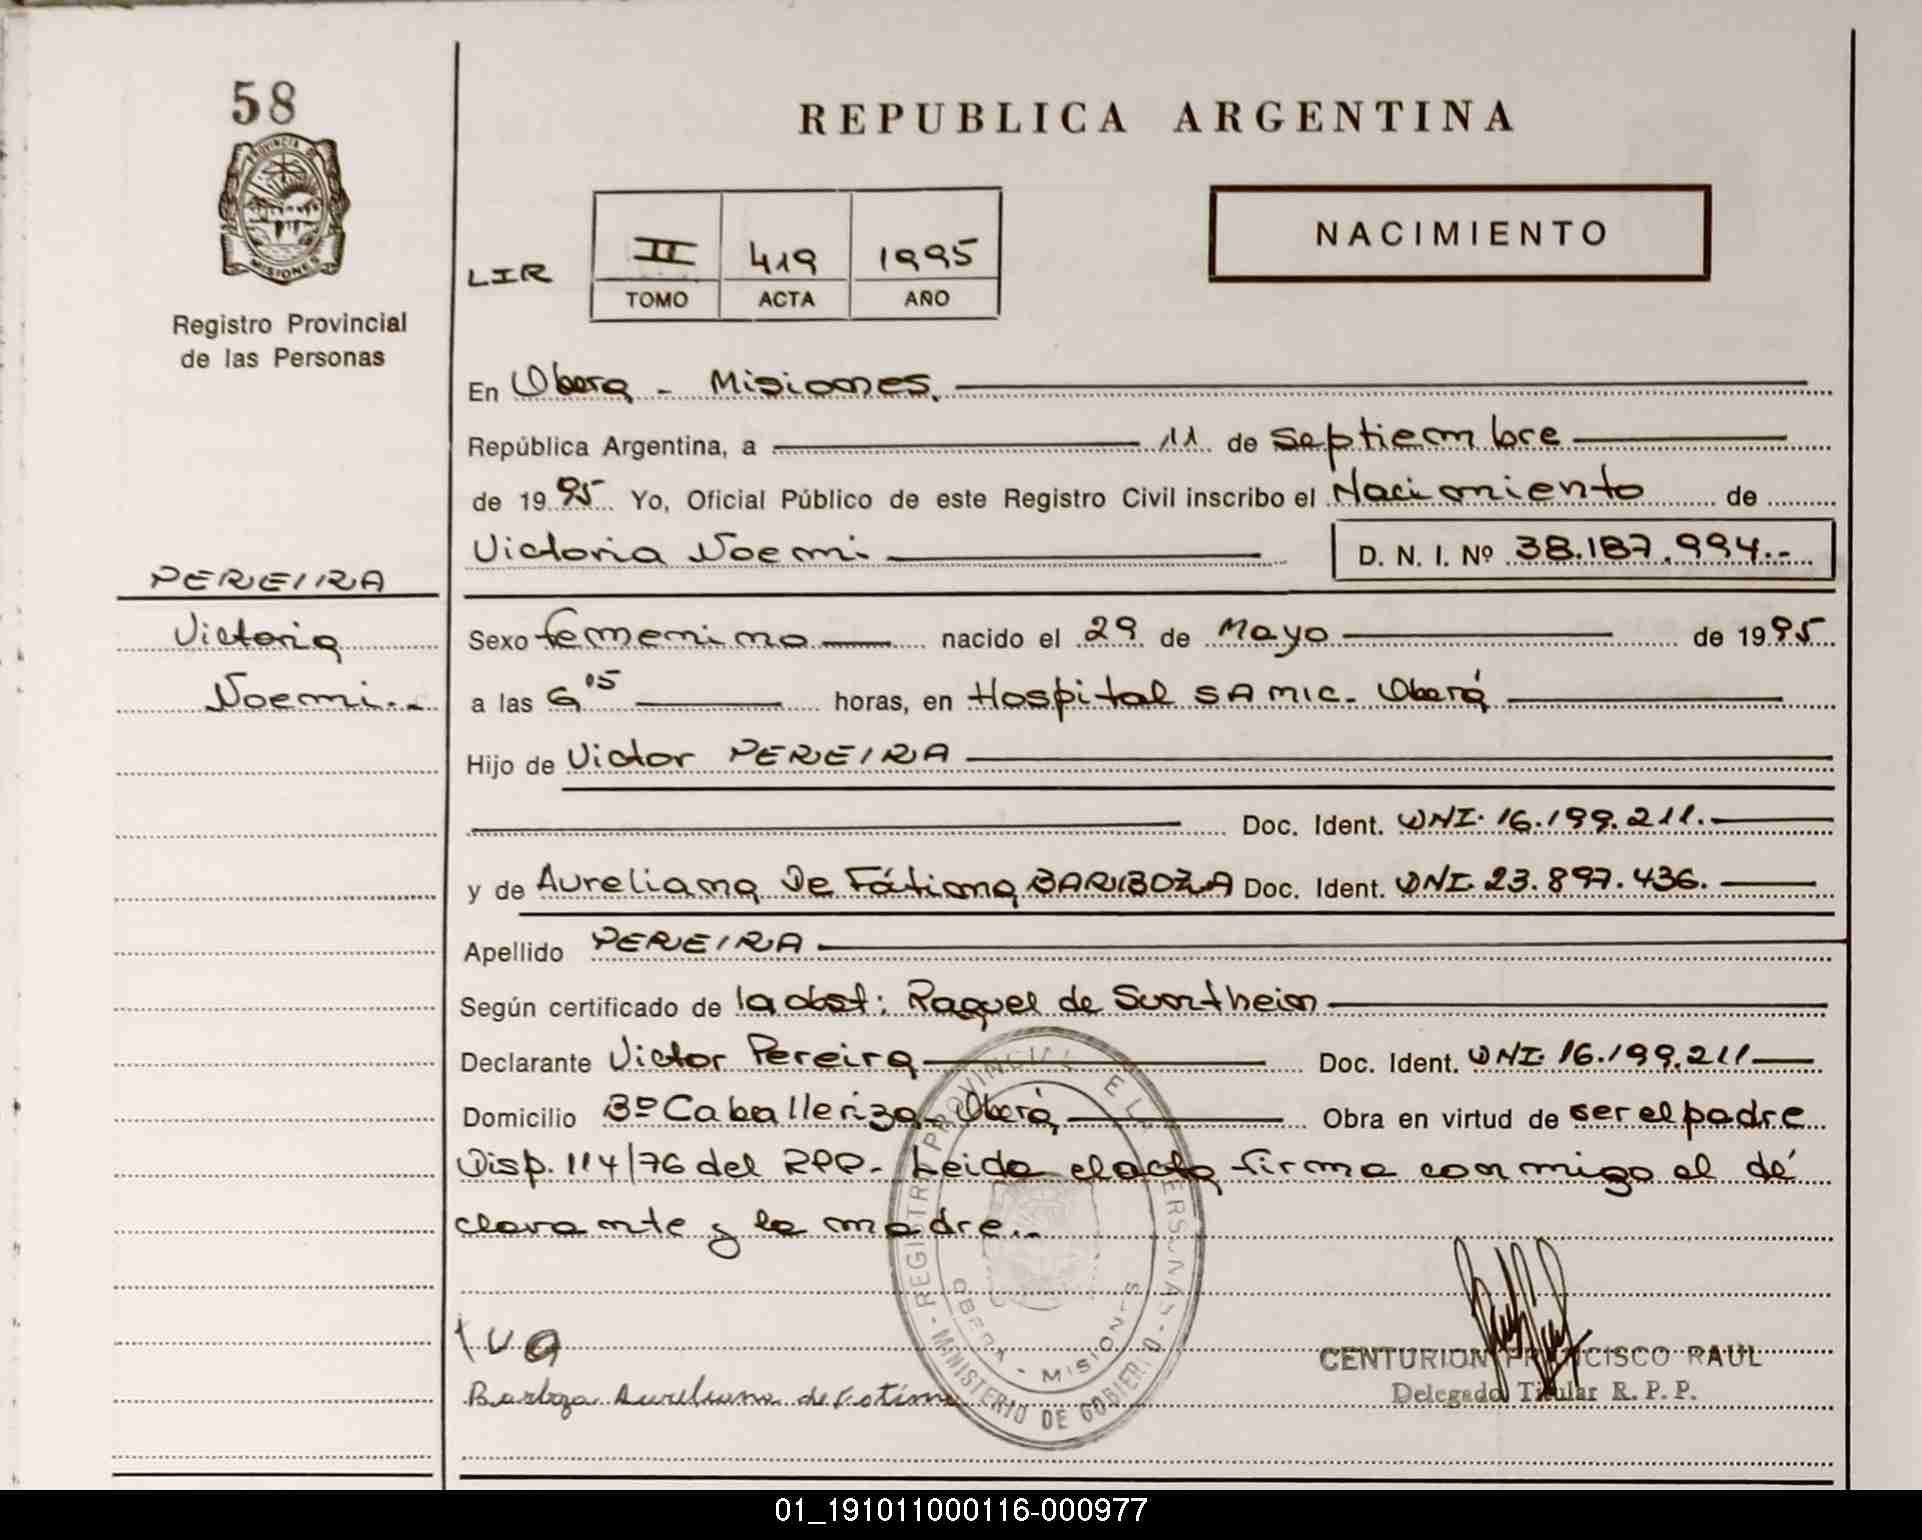 58
PROVINCIA DE
MISIONES
Registro Provincial
de las Personas
REPUBLICA ARGENTINA
NACIMIENTO
LIR
II 419 1995
TOMO ACTA AÑO
En Obera - Misiones.
República Argentina, a 11 de Septiembre
de 19 95 Yo, Oficial Público de este Registro Civil inscribo el Nacimiento de
Victoria Noemi. D. N. I. Nº 38.187.994.-
PEREIRA
Victoria
Noemi.-
Sexo femenino nacido el 29 de Mayo de 19 95
a las 6 05 horas, en Hospital SAMIC. Oberá
Hijo de Victor PEREIRA
Doc. Ident. DNI. 16.199.211.
y de Aureliana De Fátima BARBOZA Doc. Ident. DNI. 23.897.436.
Apellido PEREIRA
Según certificado de la obst: Raquel de Suntheim
Declarante Victor Pereira Doc. Ident. DNI. 16.199.211
Domicilio Bº Caballeriza - Oberá Obra en virtud de ser el padre
Disp. 114/76 del RPP. Leida el acta firma conmigo el de
clarante y la madre..
REGISTRO PROVINCIAL DE LAS PERSONAS
MINISTERIO DE GOBIERNO
OBERA - MISIONES
Barboza Aureliana de Fatima
CENTURION FRANCISCO RAUL
Delegado Titular R. P. P.
01_191011000116-000977